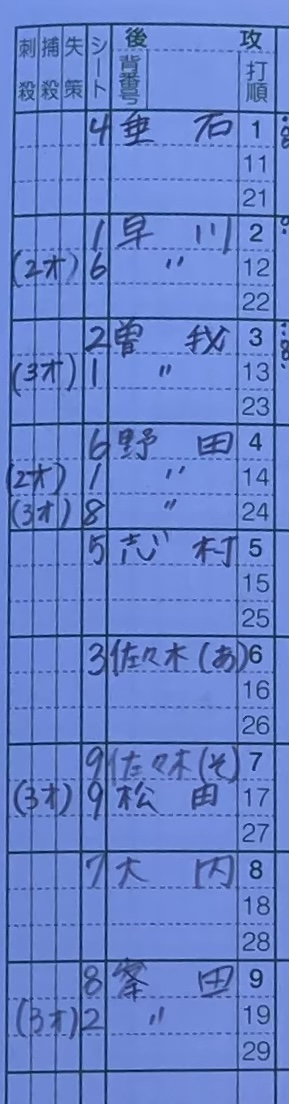 刺殺 捕殺 失策 シート 後攻 背番号 打順
4 垂石 1
11
21
1 早川 2
(2オ) 6 〃 12
22
2 曽我 3
(3オ) 1 〃 13
23
6 野田 4
(2オ) 1 〃 14
(3オ) 8 〃 24
5 志村 5
15
25
3 佐々木(あ) 6
16
26
9 佐々木(そ) 7
(3オ) 9 松田 17
27
7 大内 8
18
28
8 峯田 9
(3オ) 2 〃 19
29